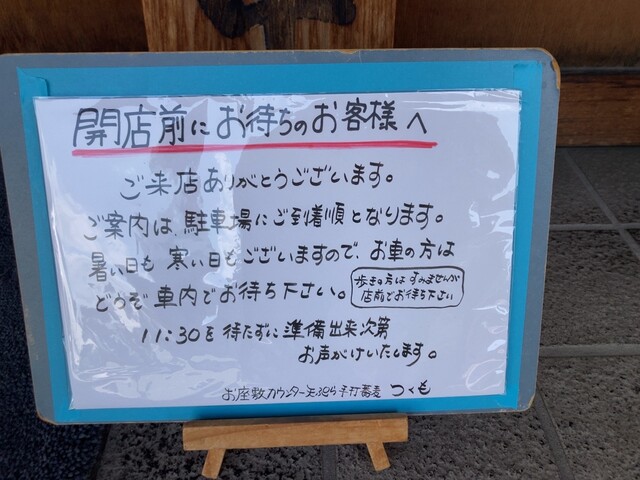 開店前にお待ちのお客様へ
ご来店ありがとうございます。
ご案内は、駐車場にご到着順となります。
暑い日も 寒い日もございますので、お車の方は
どうぞ 車内でお待ち下さい。
歩きの方は すみませんが
店前でお待ち下さい
11:30を 待たずに 準備出来次第
お声がけいたします。
お座敷カウンター 手打蕎麦 つくも